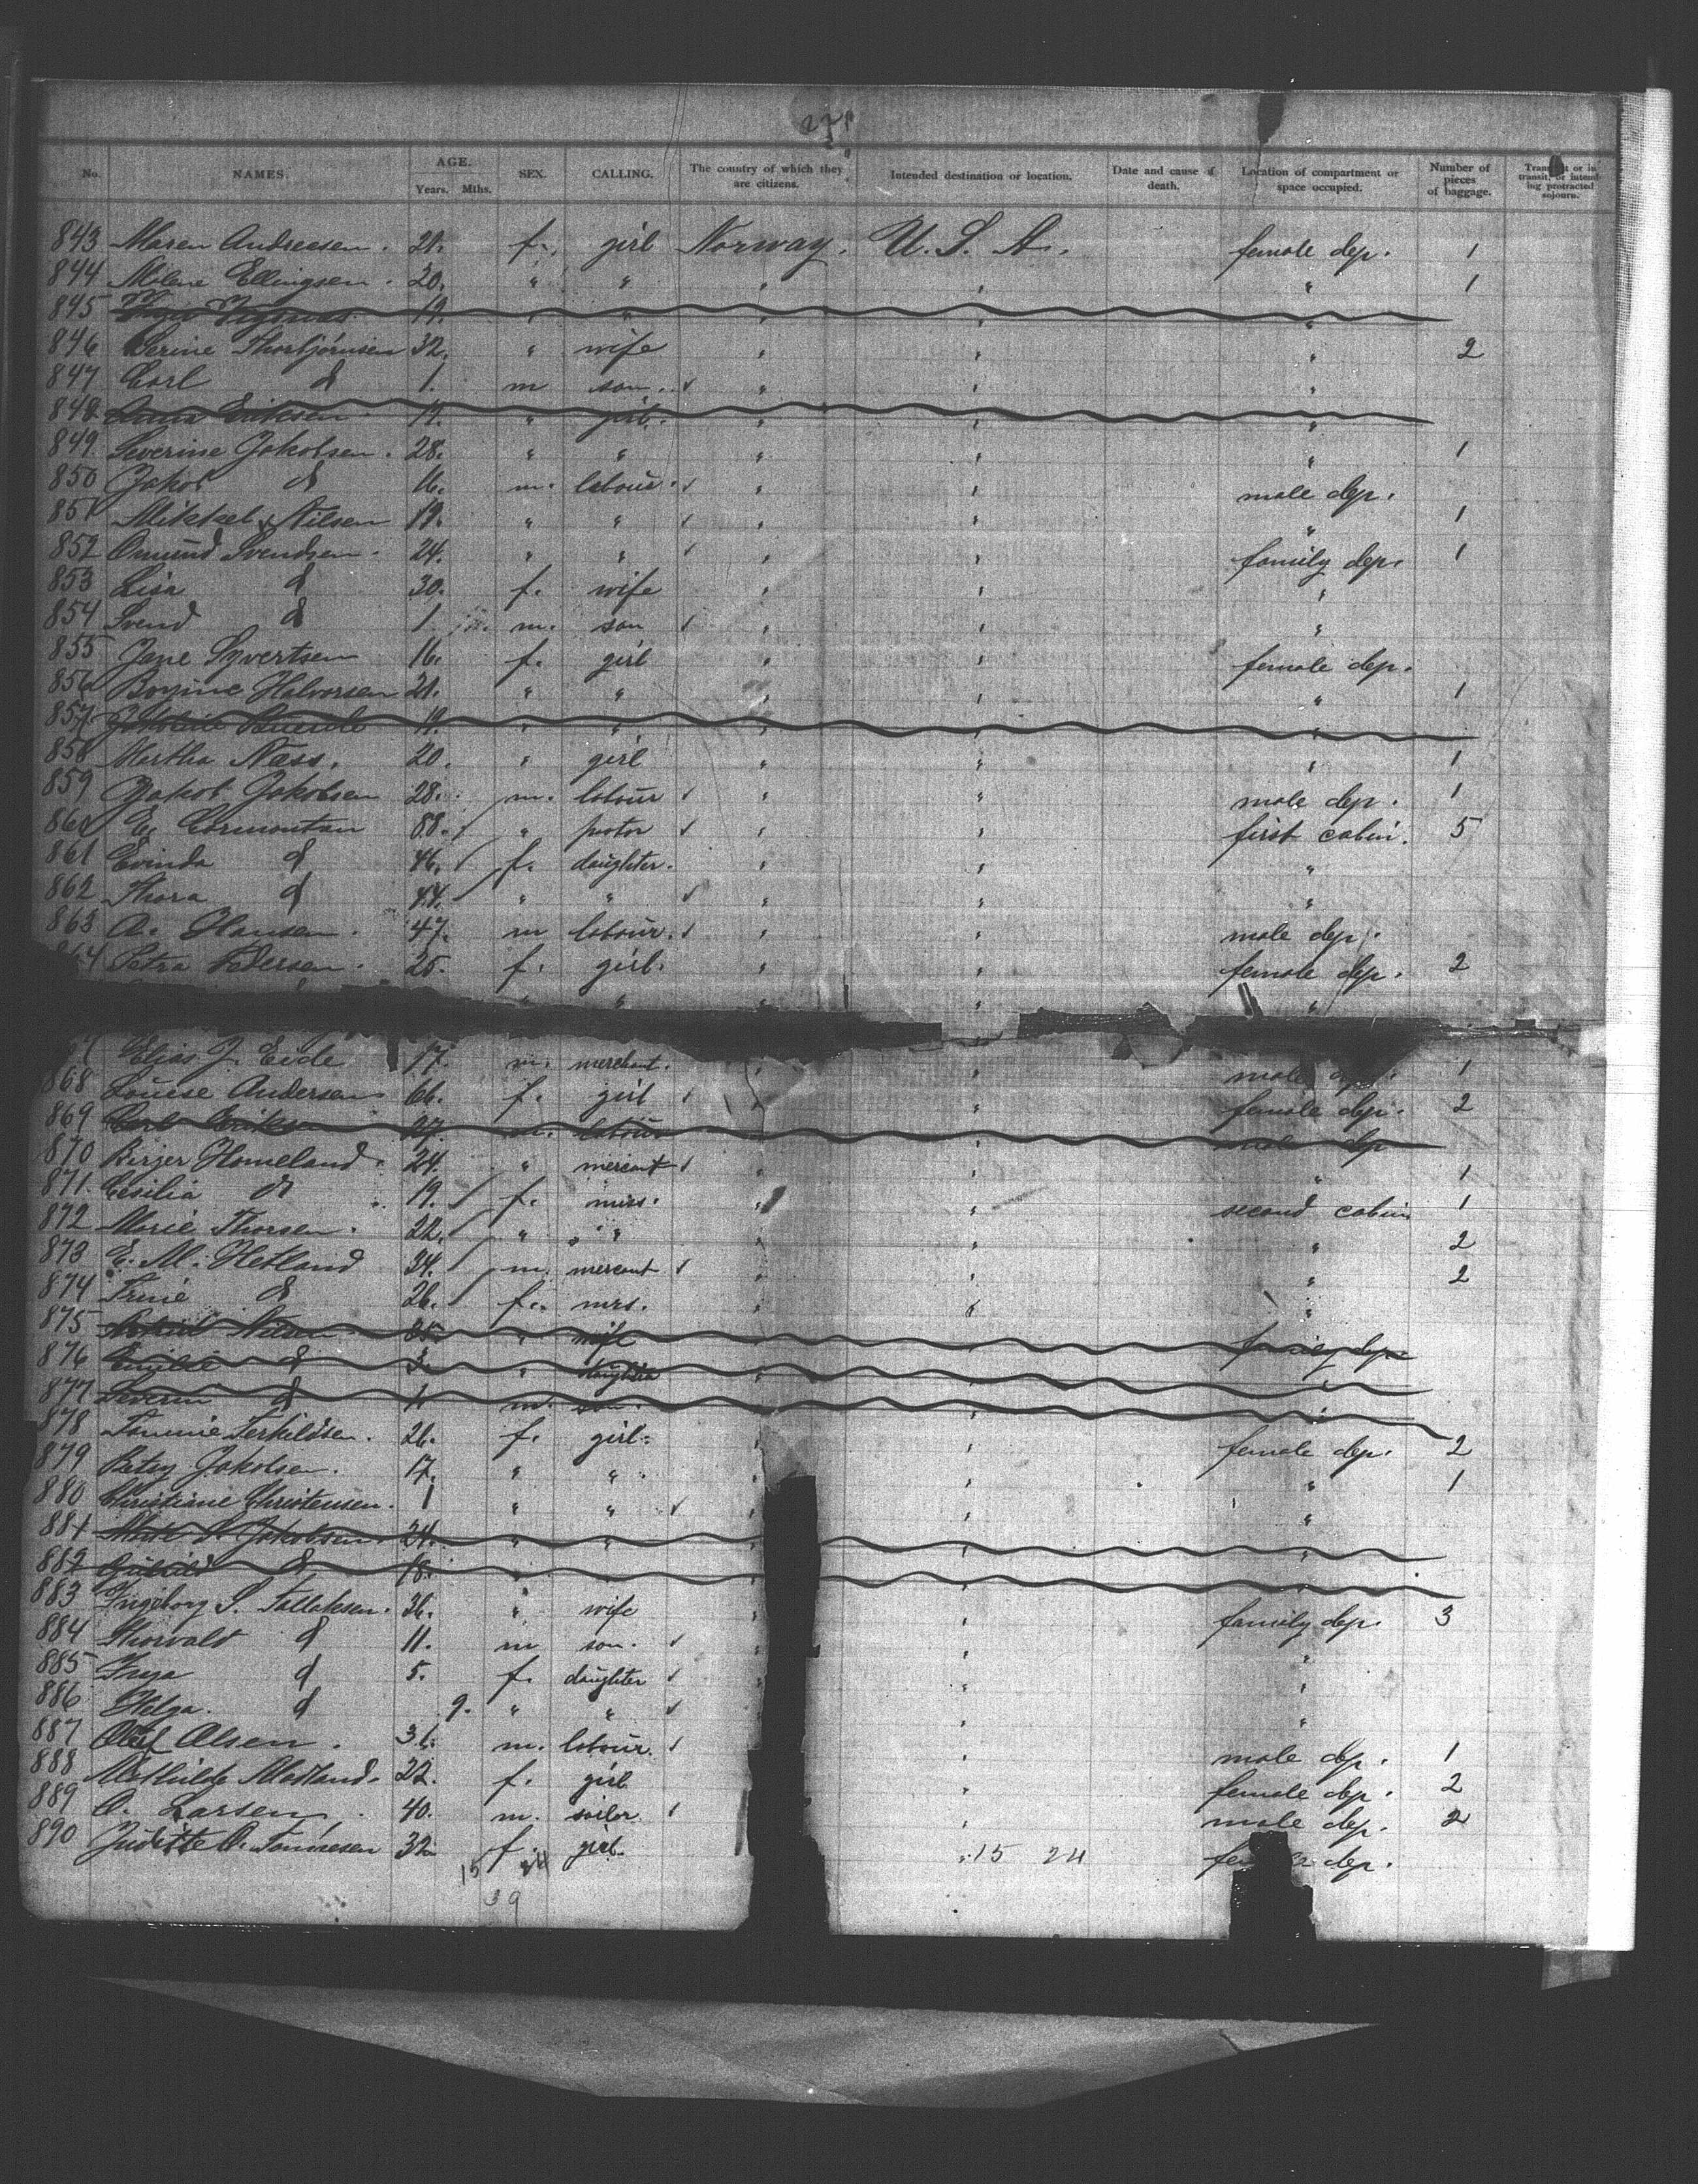 27
No. NAMES. AGE. Years. Mths. SEX. CALLING. The country of which they are citizens. Intended destination or location. Date and cause of death. Location of compartment or space occupied. Number of pieces of baggage. Transit or in transit, or intending protracted sojourn.
843 Maren Andreesen. 21. f. girl Norway. U. S. A. female dep. 1
844 Malene Ellingsen. 20. " " " " " 1
845 19. " " " " "
846 Serine Thorbjörnsen 32. " wife " " " 2
847 Carl d 1. m son. " " "
848 Anna Eriksen 19. " girl. " " "
849 Severine Jakobsen. 28. " " " " " 1
850 Jakob d 16. m. labour. " " male dep.
851 Mikkel Nilsen 19. " " " " " 1
852 Omund Svendsen. 24. " " " " family dep. 1
853 Lisa d 30. f. wife " " "
854 Svend d 1. m. son " " "
855 Jane Syvertsen 16. f. girl " " female dep.
856 Halvorsen 21. " " " " " 1
857 19. " " " " "
858 Martha Næss. 20. " girl " " " 1
859 Jakob Jakobsen 28. m. labour " " male dep. 1
860 E. Cormontan 88. " pastor " " first cabin. 5
861 Evinda d 46. f. daughter. " " "
862 Thora d 44. " " " " "
863 A. Hansen. 47. m labour. " " male dep.
64 Petra Pedersen. 25. f. girl. " " female dep. 2
" " " " "
7 Elias J. Eide 17. m. merchant. " " male 1
868 Louise Andersen 66. f. girl " " female dep. 2
869 Carl Eriksen 27. m. labour male dep
870 Birger Homeland. 24. " mercant " " 1
871. Cesilia d 19. f. mrs. " " second cabin 1
872 Marie Thorsen. 22. " " " " " 2
873 E. M. Hetland 34. m. mercant " " " 2
874 Trine d 26. f. mrs. " " "
875 Nilsen 25. " wife family dep.
876 Emilie d 3. " daughter " " "
877 Severin d 1. m. son. " "
878 Tommine Terkildsen. 26. f. girl. " " female dep. 2
879 Betsy Jakobsen. 17. " " " " " 1
880 Christiane Christensen. 1 " " " " "
881 Jakobsen 24. " " " " "
882 d 18. " " " " "
883 Ingeborg S. Tallaksen. 36. " wife " " family dep. 3
884 Thorvald d 11. m son. " " "
885 Inga d 5. f. daughter " " "
886 Helga. d 9. " " " " "
887 Olaf Olsen. 36. m. labour. " male dep. 1
888 Mathilde Modland. 22. f. girl " female dep. 2
889 O. Larsen. 40. m. sailor " male dep. 2
890 Juditte O. Tönnesen 32. f. girl. " dep.
15 24 15 24
39